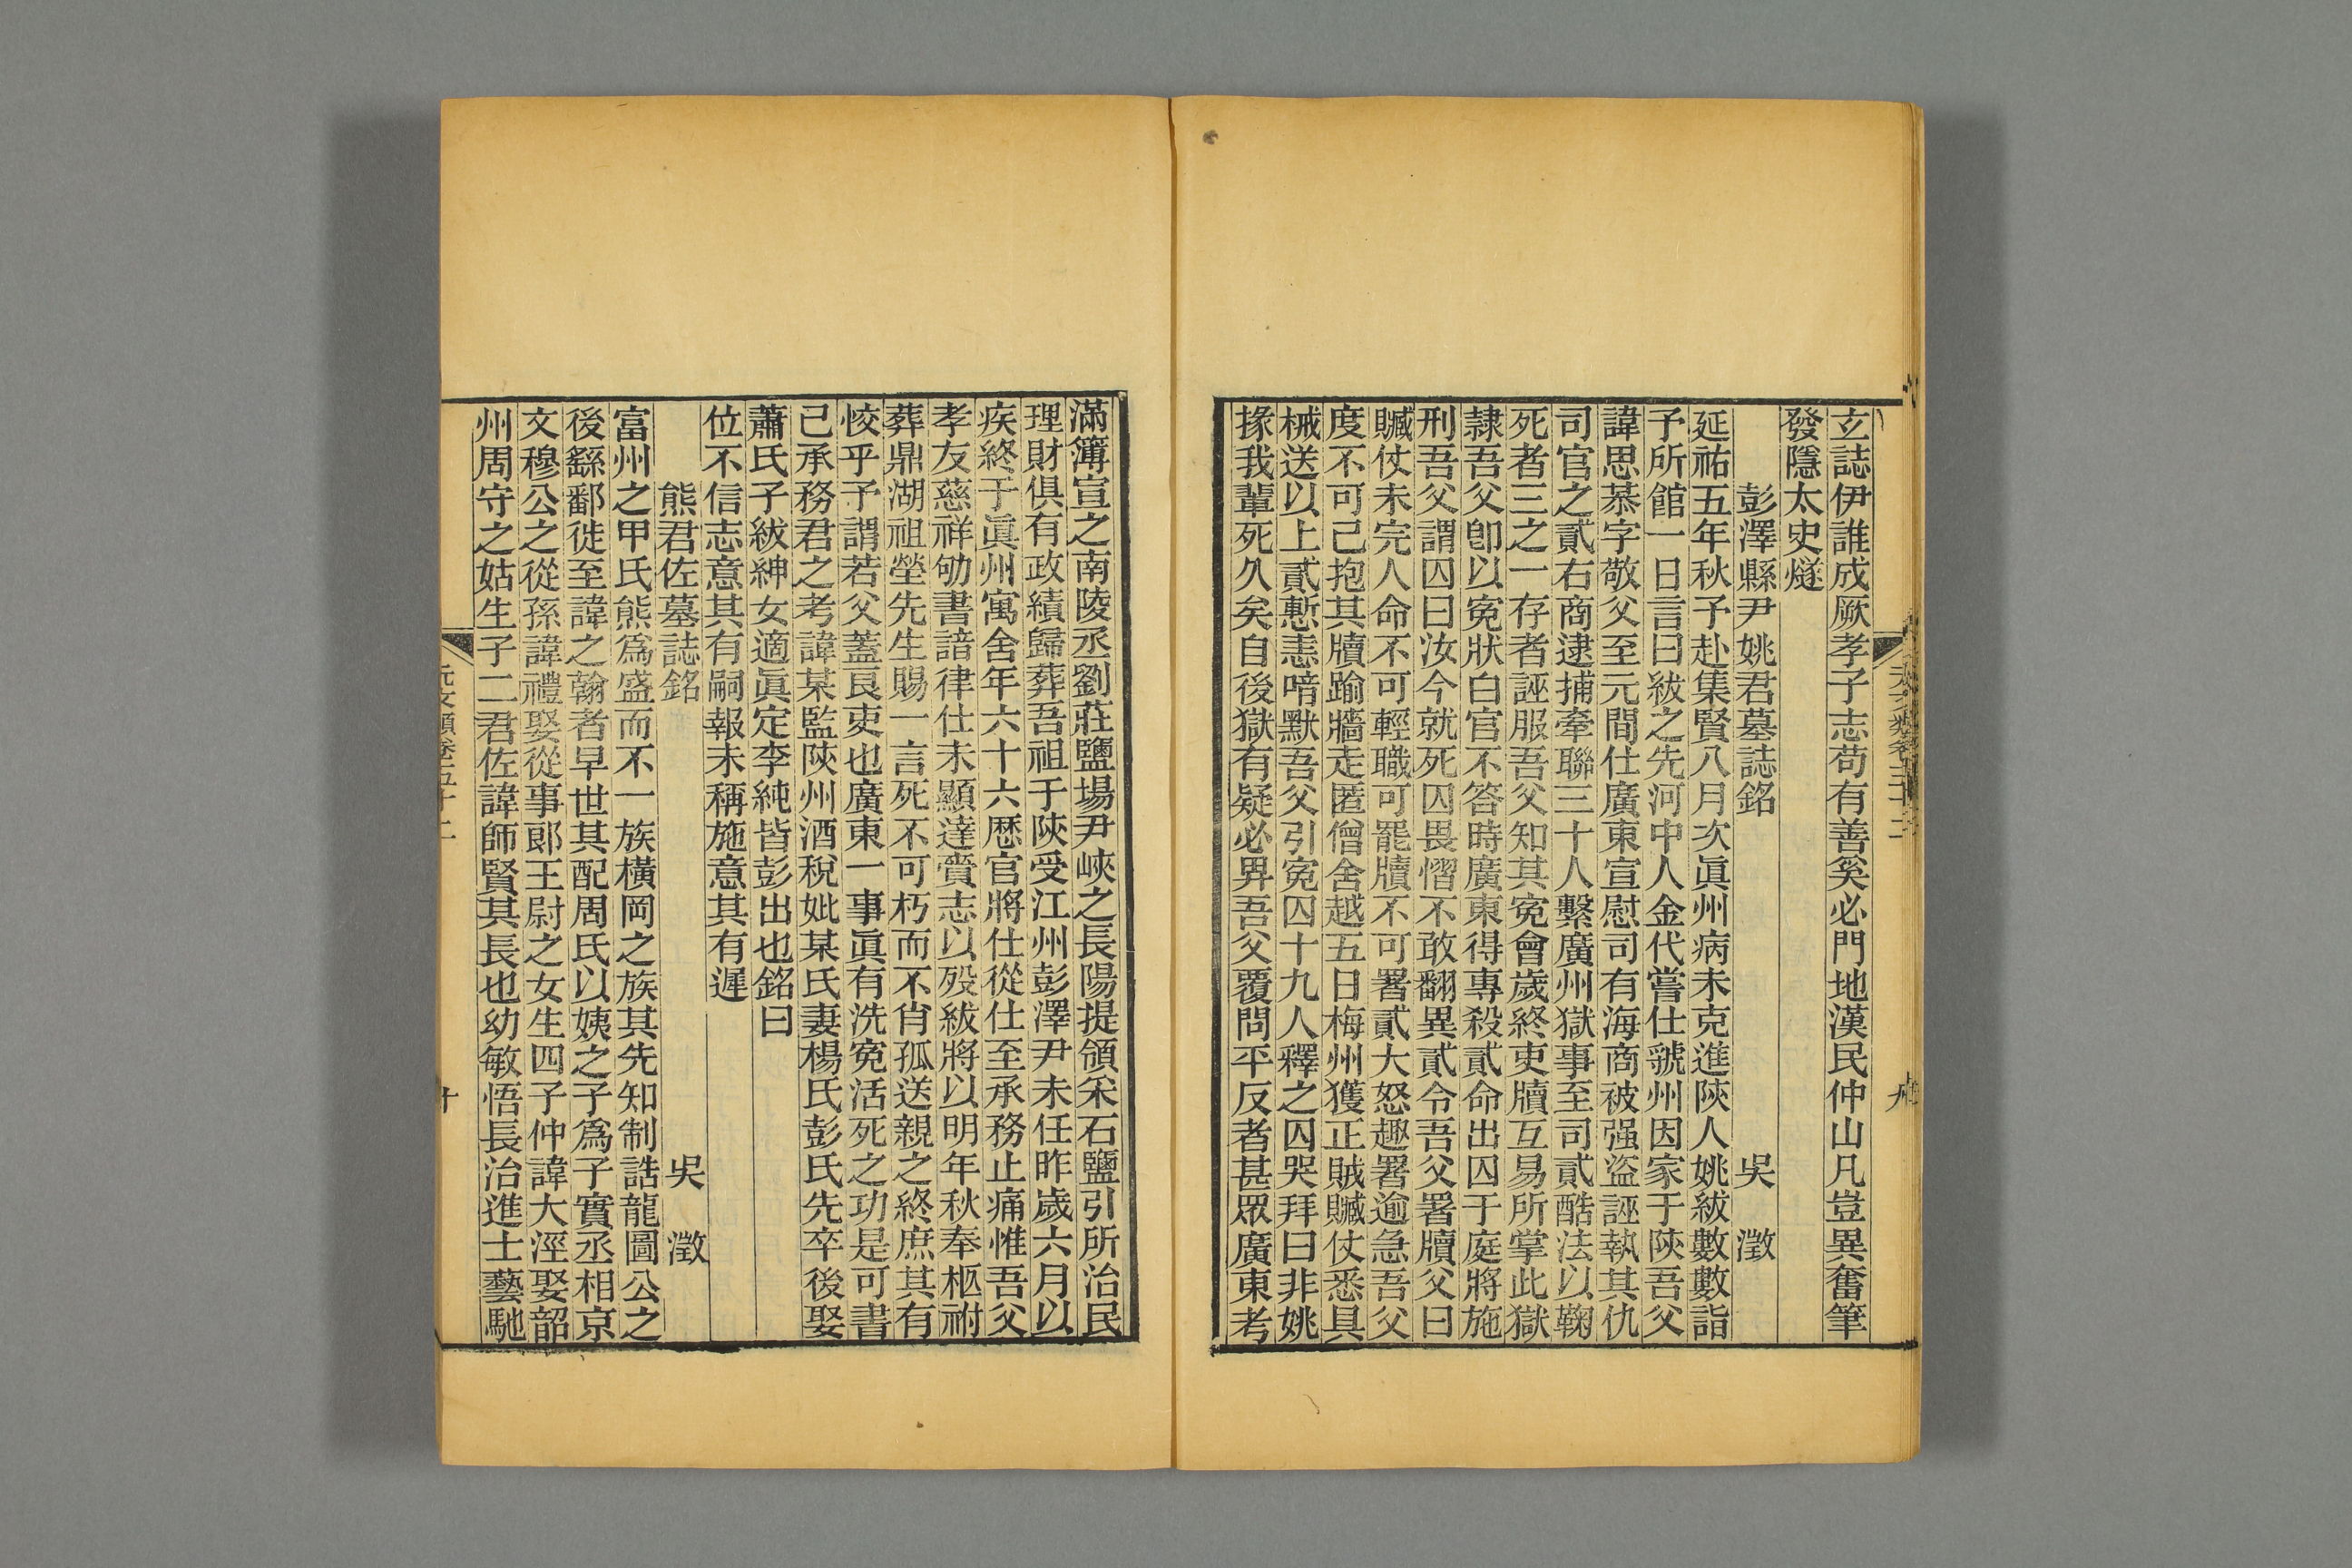 玄誌伊誰成厥孝子志苟有善奚必門地漢民仲山凡豈異奮筆
發隱太史燧
彭澤縣尹姚君墓誌銘　吳　澂
延祐五年秋予赴集賢八月次眞州病未克進陜人姚紱數數詣
予所館一日言曰紱之先河中人金代嘗仕虢州因家于陜吾父
諱思恭字敬父至元間仕廣東宣慰司有海商被强盜誣執其仇
司官之貳右商逮捕牽聯三十人繫廣州獄事至司貳酷法以鞠
死者三之一存者誣服吾父知其寃會歲終吏牘互易所掌此獄
隷吾父卽以寃狀白官不答時廣東得專殺貳命出囚于庭將施
刑吾父謂囚曰汝今就死囚畏慴不敢翻異貳令吾父署牘父曰
贓仗未完人命不可輕職可罷牘不可署貳大怒趣署逾急吾父
度不可已抱其牘踰牆走匿僧舍越五日梅州獲正賊贓仗悉具
械送以上貳慙恚喑默吾父引寃囚十九人釋之囚哭拜曰非姚
掾我輩死久矣自後獄有疑必畀吾父覆問平反者甚眾廣東考
滿簿宣之南陵丞劉莊鹽場尹峽之長陽提領采石鹽引所治民
理財俱有政績歸葬吾祖于陜受江州彭澤尹未任昨歲六月以
疾終于眞州寓舍年六十六歷官將仕從仕至承務止痛惟吾父
孝友慈祥劬書諳律仕未顯達賷志以歿紱將以明年秋奉柩祔
葬鼎湖祖塋先生賜一言死不可朽而不肖孤送親之終庶其有
恔乎予謂若父蓋良吏也廣東一事眞有洗寃活死之功是可書
已承務君之考諱某監陜州酒稅妣某氏妻楊氏彭氏先卒後娶
蕭氏子紱紳女適眞定李純皆彭出也銘曰
位不信志意其有嗣報未稱施意其有遲
熊君佐墓誌銘　吳　澂
富州之甲氏熊爲盛而不一族橫岡之族其先知制誥龍圖公之
後繇鄱徙至諱之翰者早世其配周氏以姨之子爲子實丞相京
文穆公之從孫諱禮娶從事郞王尉之女生四子仲諱大溼娶韶
州周守之姑生子二君佐諱師賢其長也幼敏悟長治進士藝馳
元文類卷五十二
十